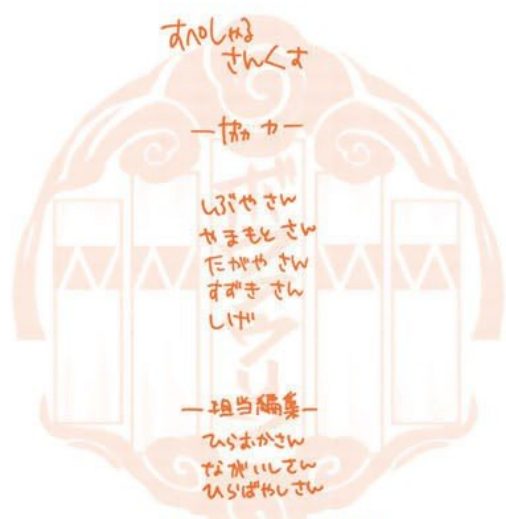 すぺしゃる
さんくす
ー協力ー
しぶやさん
やまもとさん
たがやさん
すずきさん
しげ
ー担当編集ー
ひらおかさん
ながいしさん
ひらばやしさん